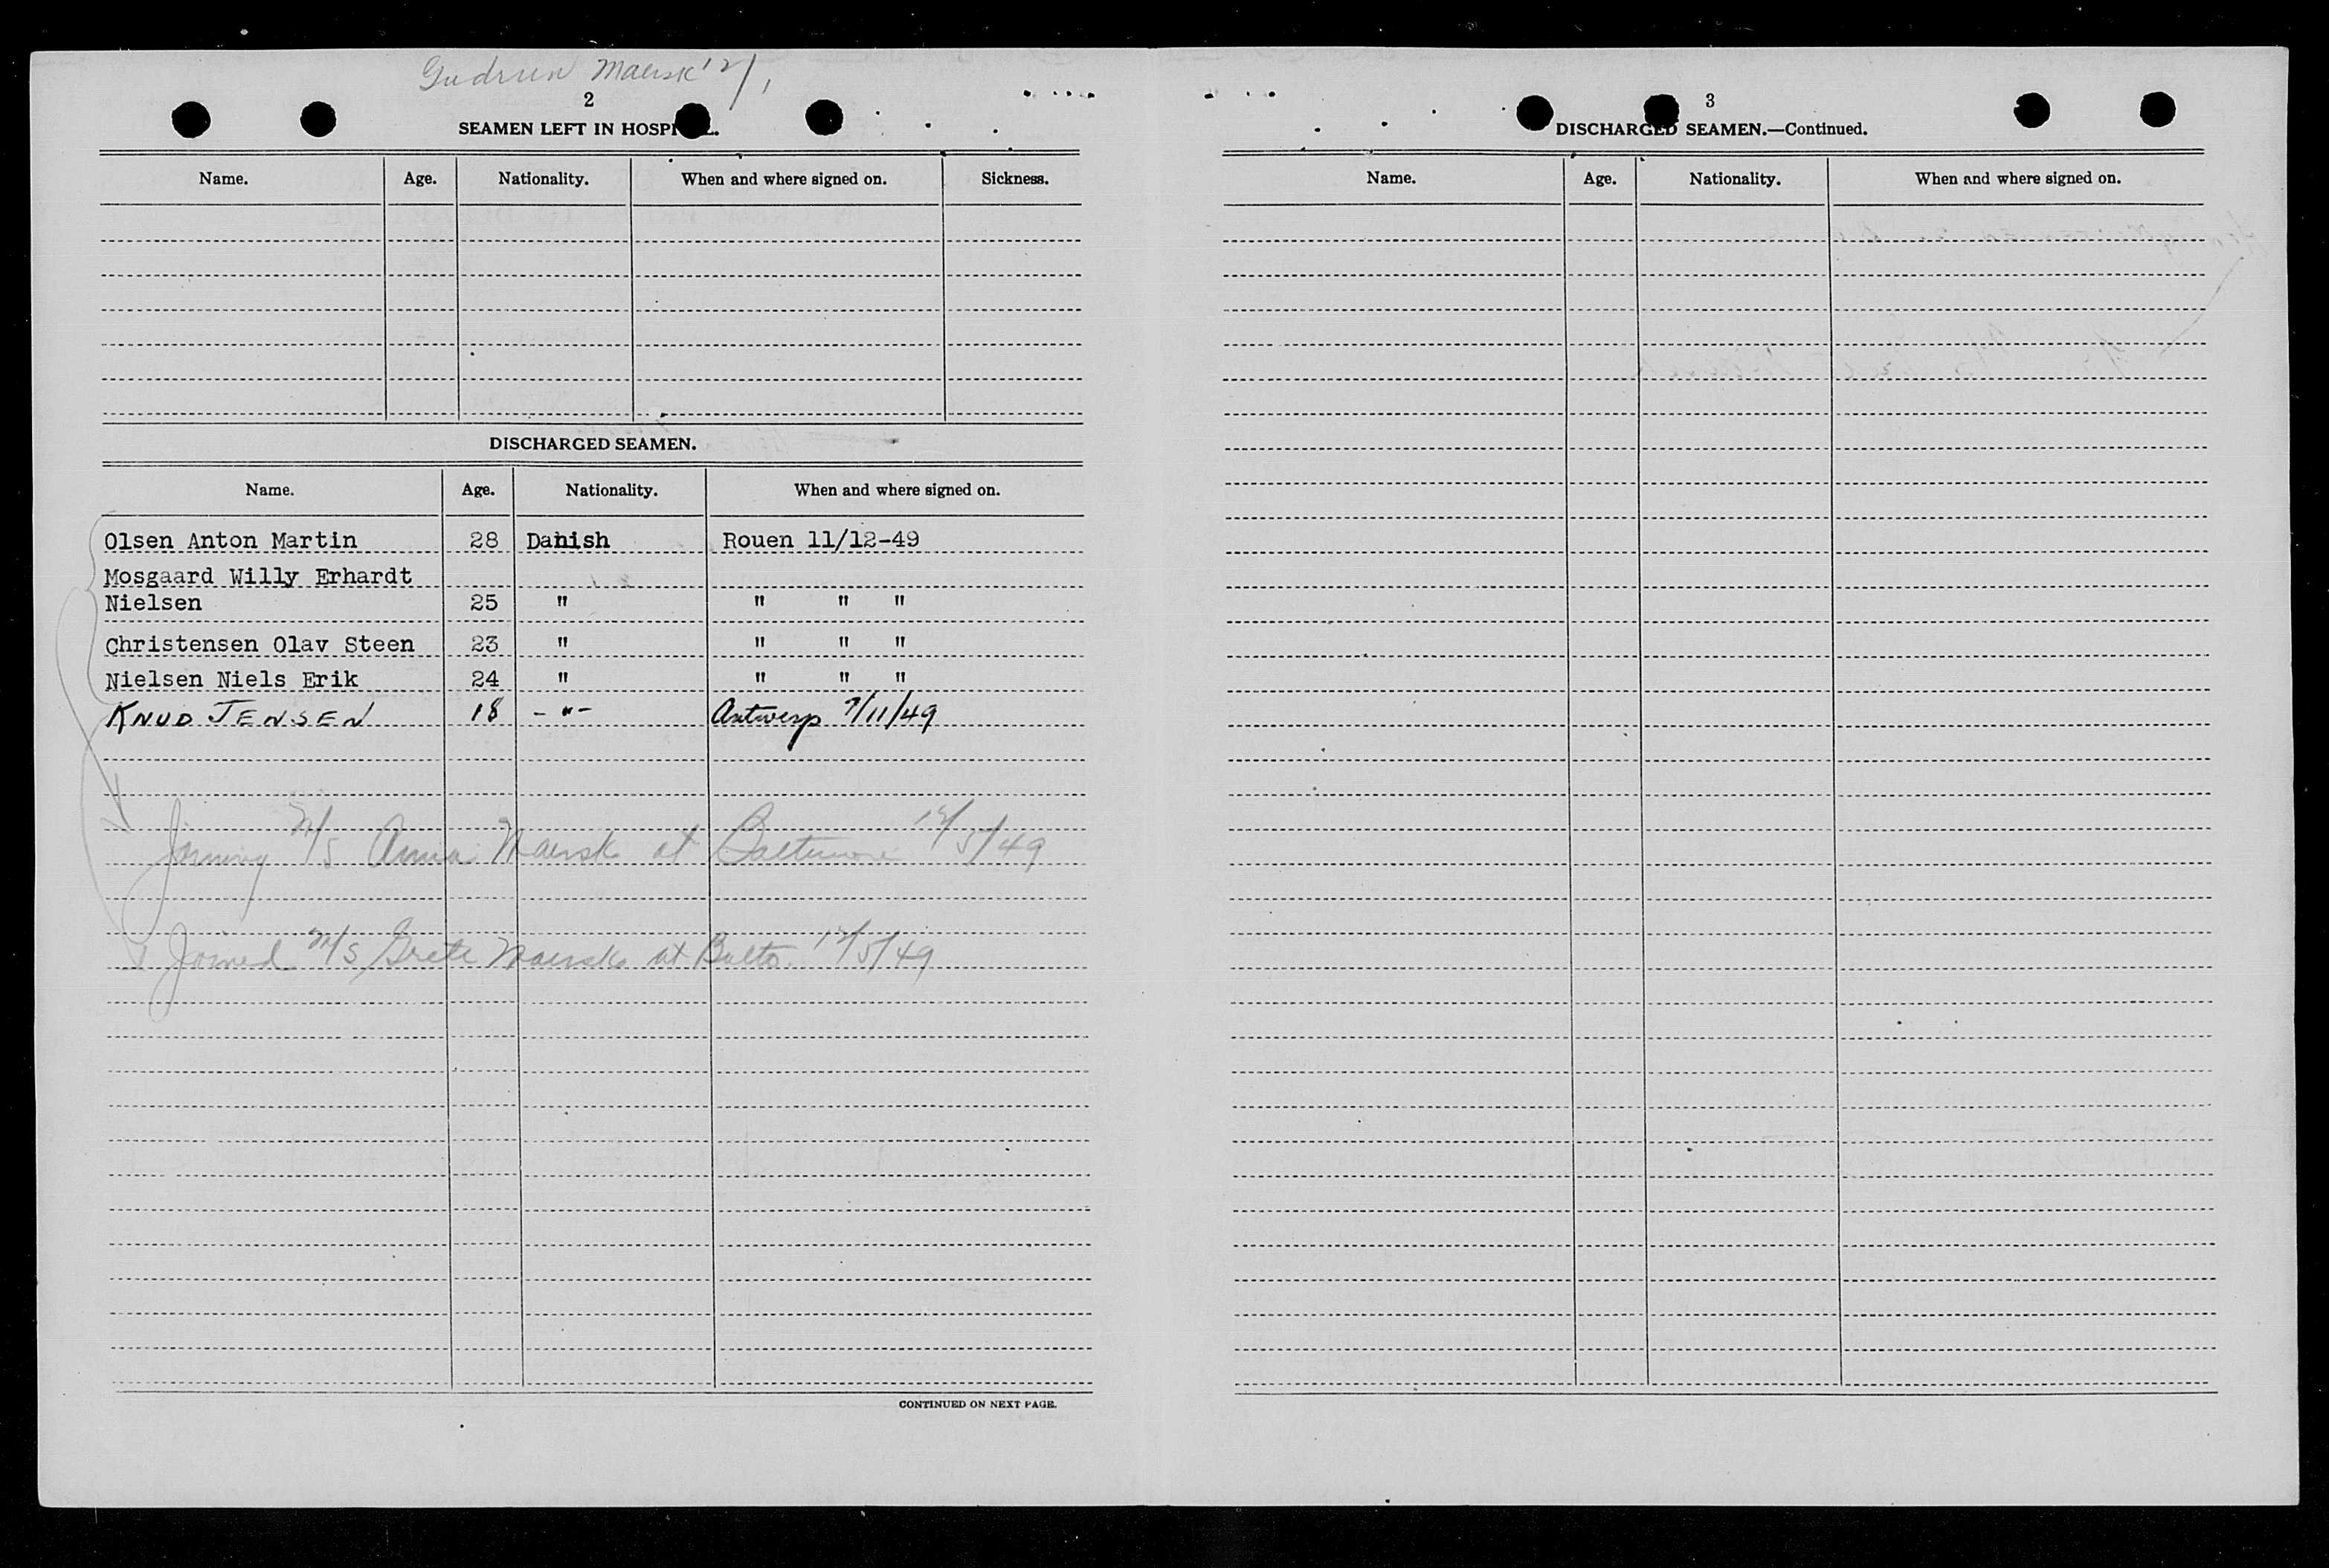 Gudrun Maersk 12/1
2
SEAMEN LEFT IN HOSPI L.
Name. Age. Nationality. When and where signed on. Sickness.
DISCHARGED SEAMEN.
Name. Age. Nationality. When and where signed on.
Olsen Anton Martin 28 Danish Rouen 11/12-49
Mosgaard Willy Erhardt
Nielsen 25 " " " "
Christensen Olav Steen 23 " " " "
Nielsen Niels Erik 24 " " " "
KNUD JENSEN 18 -"- Antwerp 9/11/49
Joining M/S Anna Maersk at Baltimore 12/5/49
Joined M/S Grete Maersk at Balto. 12/5/49
CONTINUED ON NEXT PAGE.
3
DISCHARGED SEAMEN.—Continued.
Name. Age. Nationality. When and where signed on.